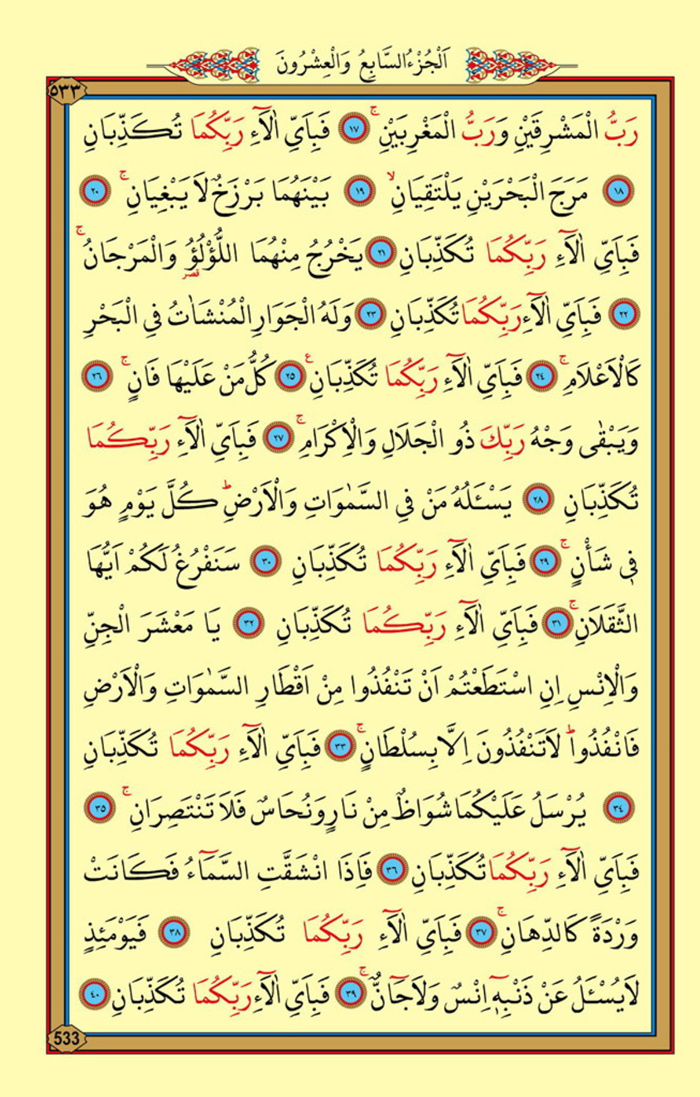 اَلْجُزْءُ السَّابِعُ وَالْعِشْرُونَ
٥٣٣
رَبُّ الْمَشْرِقَيْنِ وَرَبُّ الْمَغْرِبَيْنِۚ ﴿١٧﴾ فَبِاَيِّ اٰلَٓاءِ رَبِّكُمَا تُكَذِّبَانِ
﴿١٨﴾ مَرَجَ الْبَحْرَيْنِ يَلْتَقِيَانِۙ ﴿١٩﴾ بَيْنَهُمَا بَرْزَخٌ لَا يَبْغِيَانِۚ ﴿٢٠﴾
فَبِاَيِّ اٰلَٓاءِ رَبِّكُمَا تُكَذِّبَانِ ﴿٢١﴾ يَخْرُجُ مِنْهُمَا اللُّؤْلُؤُ۬ وَالْمَرْجَانُۚ
قصر
﴿٢٢﴾ فَبِاَيِّ اٰلَٓاءِ رَبِّكُمَا تُكَذِّبَانِ ﴿٢٣﴾ وَلَهُ الْجَوَارِ الْمُنْشَاٰتُ فِي الْبَحْرِ
كَالْاَعْلَامِۚ ﴿٢٤﴾ فَبِاَيِّ اٰلَٓاءِ رَبِّكُمَا تُكَذِّبَانِ۟ ﴿٢٥﴾ كُلُّ مَنْ عَلَيْهَا فَانٍۚ ﴿٢٦﴾
وَيَبْقٰى وَجْهُ رَبِّكَ ذُو الْجَلَالِ وَالْاِكْرَامِۚ ﴿٢٧﴾ فَبِاَيِّ اٰلَٓاءِ رَبِّكُمَا
تُكَذِّبَانِ ﴿٢٨﴾ يَسْـَٔلُهُ مَنْ فِي السَّمٰوَاتِ وَالْاَرْضِۜ كُلَّ يَوْمٍ هُوَ
فٖي شَأْنٍۚ ﴿٢٩﴾ فَبِاَيِّ اٰلَٓاءِ رَبِّكُمَا تُكَذِّبَانِ ﴿٣٠﴾ سَنَفْرُغُ لَكُمْ اَيُّهَا
الثَّقَلَانِۚ ﴿٣١﴾ فَبِاَيِّ اٰلَٓاءِ رَبِّكُمَا تُكَذِّبَانِ ﴿٣٢﴾ يَا مَعْشَرَ الْجِنِّ
وَالْاِنْسِ اِنِ اسْتَطَعْتُمْ اَنْ تَنْفُذُوا مِنْ اَقْطَارِ السَّمٰوَاتِ وَالْاَرْضِ
فَانْفُذُواۜ لَا تَنْفُذُونَ اِلَّا بِسُلْطَانٍۚ ﴿٣٣﴾ فَبِاَيِّ اٰلَٓاءِ رَبِّكُمَا تُكَذِّبَانِ
﴿٣٤﴾ يُرْسَلُ عَلَيْكُمَا شُوَاظٌ مِنْ نَارٍ وَنُحَاسٌ فَلَا تَنْتَصِرَانِۚ ﴿٣٥﴾
فَبِاَيِّ اٰلَٓاءِ رَبِّكُمَا تُكَذِّبَانِ ﴿٣٦﴾ فَاِذَا انْشَقَّتِ السَّمَٓاءُ فَكَانَتْ
وَرْدَةً كَالدِّهَانِۚ ﴿٣٧﴾ فَبِاَيِّ اٰلَٓاءِ رَبِّكُمَا تُكَذِّبَانِ ﴿٣٨﴾ فَيَوْمَئِذٍ
لَا يُسْـَٔلُ عَنْ ذَنْبِهٖٓ اِنْسٌ وَلَا جَٓانٌّۚ ﴿٣٩﴾ فَبِاَيِّ اٰلَٓاءِ رَبِّكُمَا تُكَذِّبَانِ ﴿٤٠﴾
533